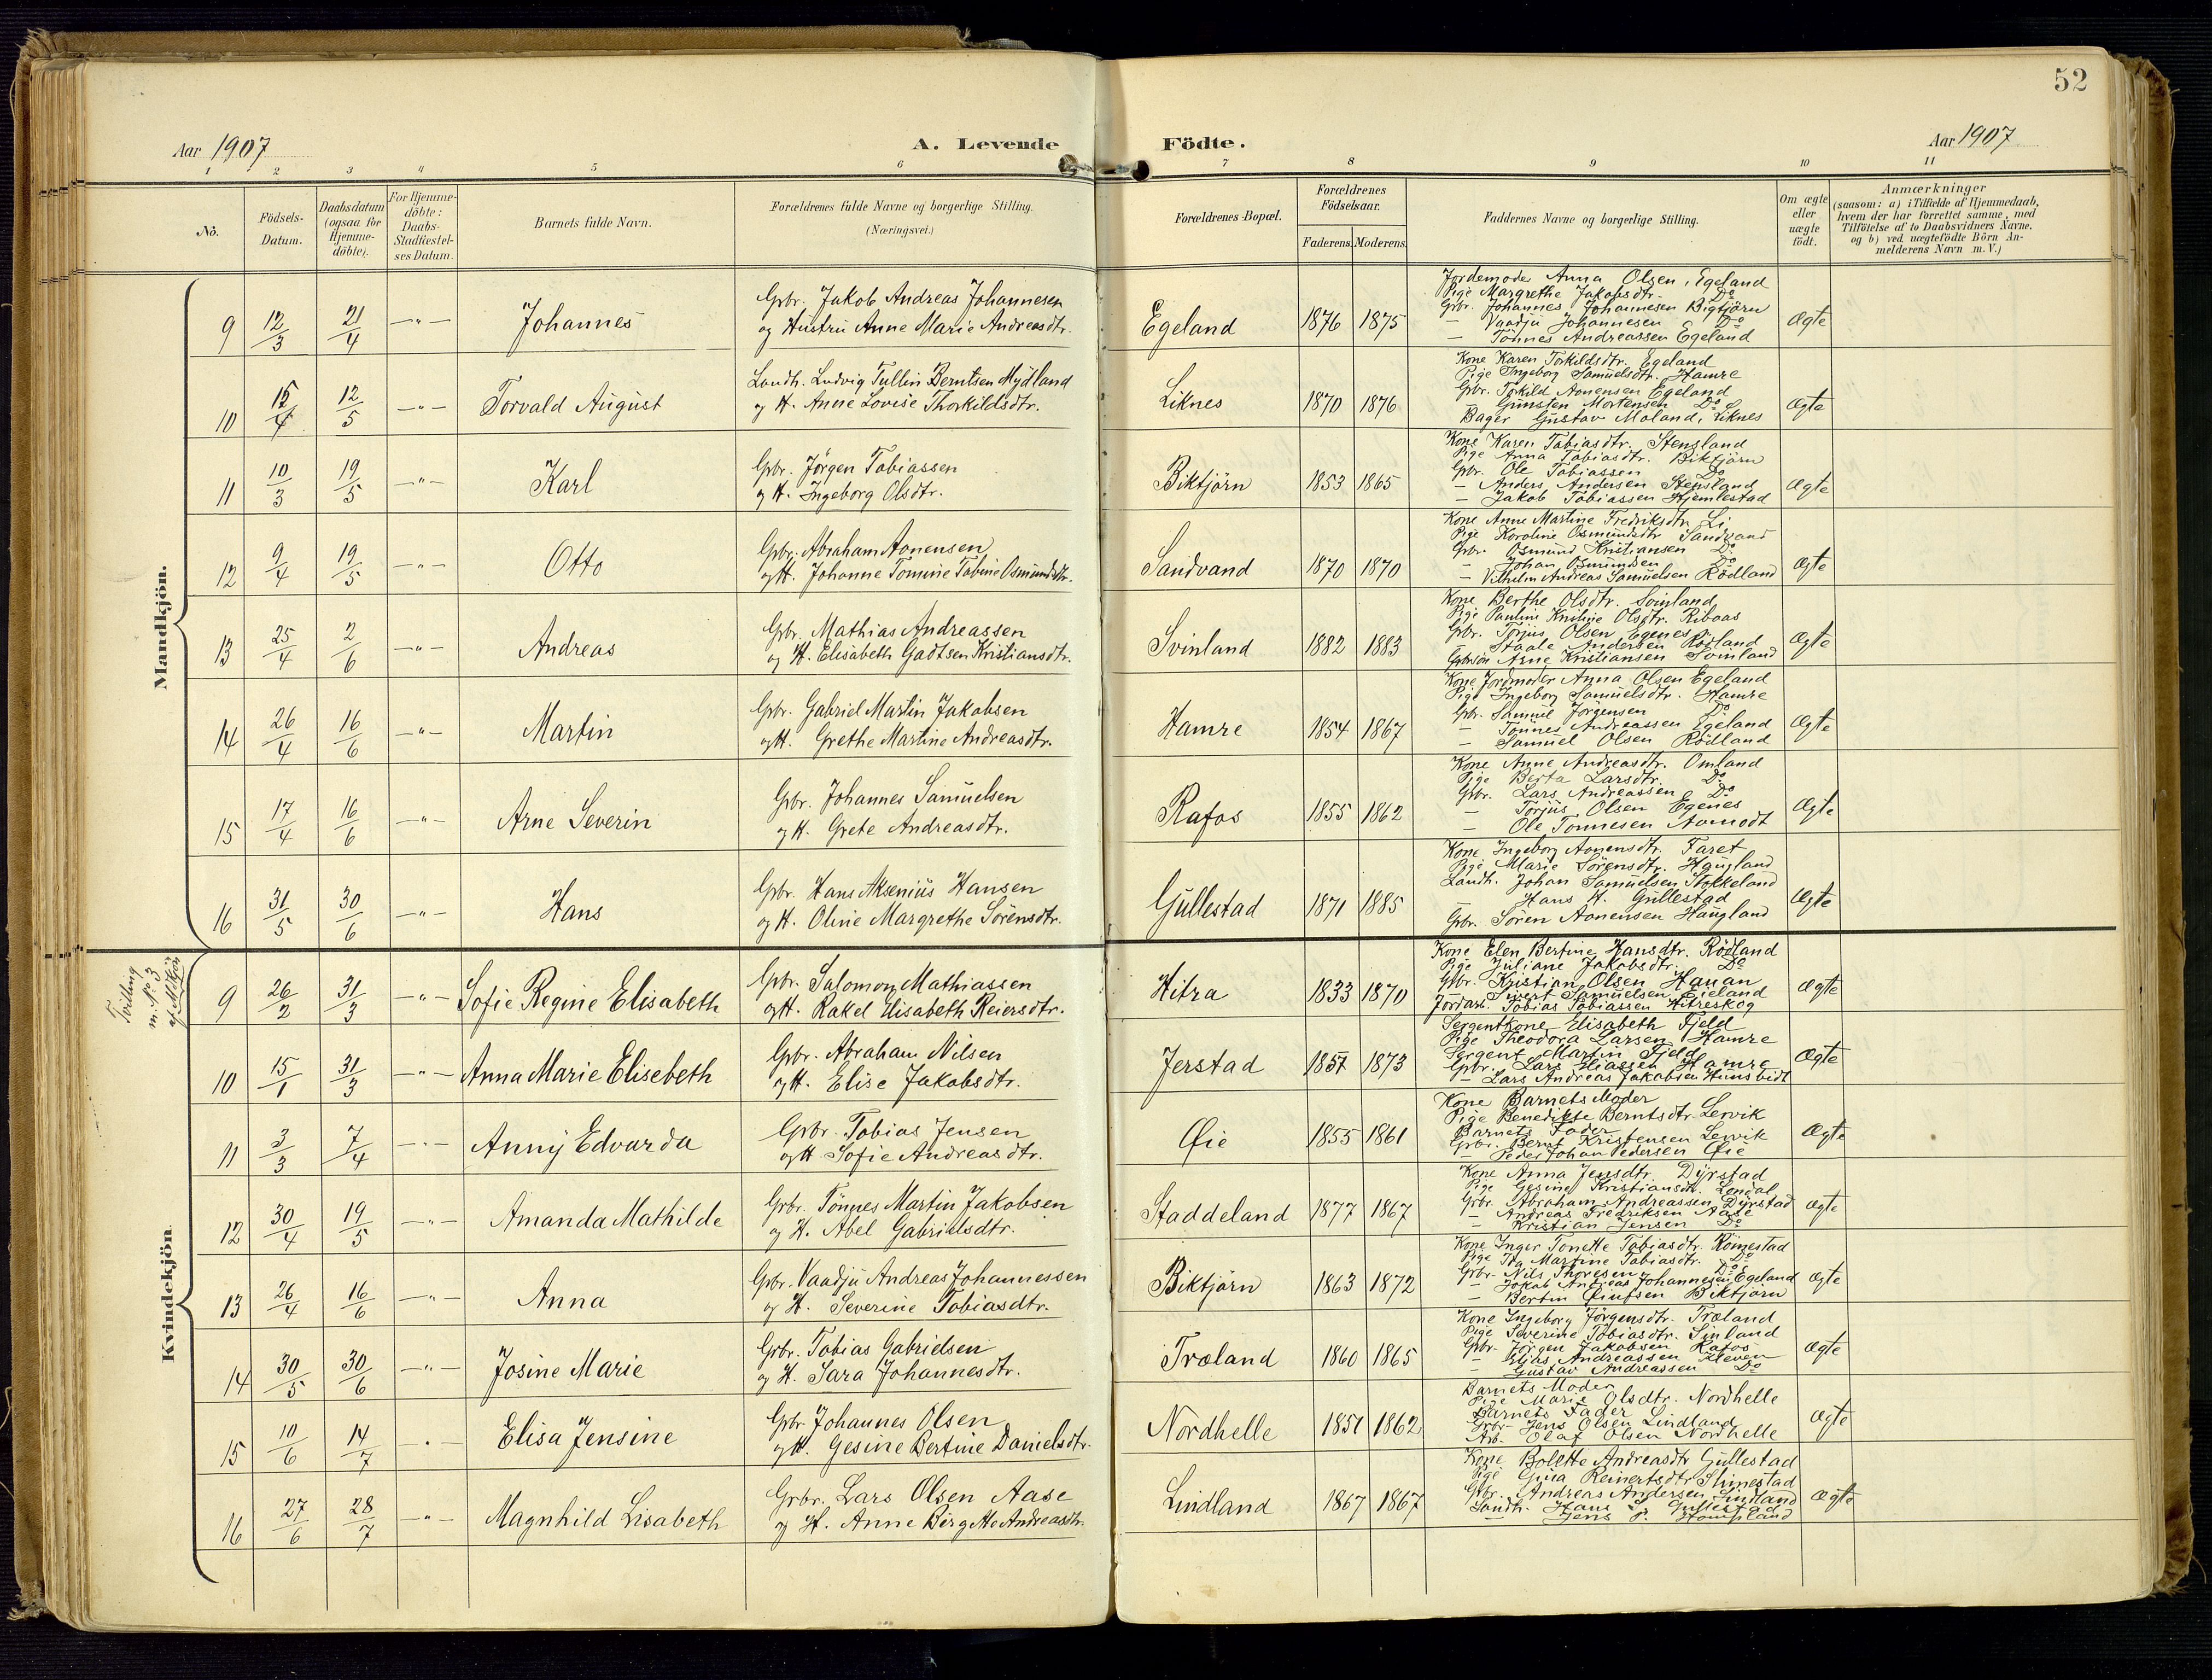 52
Aar 1907
A. Levende Födte.
Aar 1907
1 2 3 4 5 6 7 8 9 10 11
No.
Födsels-
Datum.
Daabsdatum
(ogsaa for
Hjemme-
döbte).
For Hjemme-
döbte:
Daabs-
Stadfæstel-
ses Datum.
Barnets fulde Navn.
Forældrenes fulde Navne og borgerlige Stilling.
(Næringsvei.)
Forældrenes Bopæl.
Forældrenes
Födselsaar.
Faderens. Moderens.
Faddernes Navne og borgerlige Stilling.
Om ægte
eller
uægte
födt.
Anmærkninger
(saasom: a) i Tilfælde af Hjemmedaab,
hvem der har forrettet samme, med
Tilföielse af to Daabsvidners Navne,
og b) ved uægtefödte Börn An-
melderens Navn m. V.)
Mandkjön.
9 12/3 21/4 —"— Johannes
Gbr. Jakob Andreas Johannesen
og Hustru Anne Marie Andreasdtr.
Egeland 1876 1875
Jordemode Anna Olsen, Egeland
Pige Margrethe Jakobsdtr. Do
Gbr. Johannes Johannesen Bigtjörn
— Vaadju Johannesen Do
— Tönnes Andreassen Egeland
Ægte
10 15/4 12/5 —"— Torvald August
Landh. Ludvig Tullin Berntsen Mydland
og H. Anne Lovise Thorkildsdtr.
Liknes 1870 1876
Kone Karen Torkildsdtr. Egeland
Pige Ingeborg Samuelsdtr. Hamre
Gbr. Torkild Aanensen Egeland
— Gunsten Mortensen Do
Bager Gustav Moland, Liknes
Ægte
11 10/3 19/5 —"— Karl
Gbr. Jörgen Tobiassen
og H. Ingeborg Olsdtr.
Biktjörn 1853 1865
Kone Karen Tobiasdtr. Stensland
Pige Anna Tobiasdtr. Biktjörn
Gbr. Ole Tobiassen Do
— Anders Andersen Stensland
— Jakob Tobiassen Hjemlestad
Ægte
12 9/4 19/5 —"— Otto
Gbr. Abraham Aanensen
og H. Johanne Tomine Tobine Osmundsdtr.
Sandvand 1870 1870
Kone Anne Martine Fredriksdtr. Li
Pige Karoline Osmundsdtr Sandvand
Gbr. Osmund Kristiansen Do
— Johan Osmundsen Do
— Vilhelm Andreas Samuelsen Rödland
Ægte
13 25/4 2/6 —"— Andreas
Gbr. Mathias Andreassen
og H. Elisabeth Gadtsen Kristiansdtr.
Svinland 1882 1883
Kone Berthe Olsdtr. Svinland
Pige Pauline Kristine Olsdtr. Riboas
Gbr. Torjus Olsen Egenes
— Staale Andersen Rödland
Gbrsön Arne Kristiansen Svinland
Ægte
14 26/4 16/6 —"— Martin
Gbr. Gabriel Martin Jakobsen
og H. Grethe Martine Andreasdtr.
Hamre 1854 1867
Kone Jordmoder Anna Olsen Egeland
Pige Ingeborg Samuelsdtr. Hamre
Gbr. Samuel Jörgensen Do
— Tönnes Andreassen Egeland
— Samuel Olsen Rödland
Ægte
15 17/4 16/6 —"— Arne Severin
Gbr. Johannes Samuelsen
og H. Grete Andreasdtr.
Rafos 1855 1862
Kone Anne Andreasdtr. Omland
Pige Berta Larsdtr. Do
Gbr. Lars Andreassen Do
— Torjus Olsen Egenes
— Ole Tönnesen Aamodt
Ægte
16 31/5 30/6 —"— Hans
Gbr. Hans Aksenius Hansen
og H. Oline Margrethe Sörensdtr.
Gullestad 1871 1885
Kone Ingeborg Aanensdtr. Faret
Pige Marie Sörensdtr. Haugland
Landh. Johan Samuelsen Stokkeland
— Hans H. Gullestad
Gbr. Sören Aanensen Haugland
Ægte
Kvindekjön
Tvilling
m. No 3
af M.Kjön
9 26/2 31/3 —"— Sofie Regine Elisabeth
Gbr. Salomon Mathiassen
og H. Rakel Elisabeth Reiersdtr.
Hitra 1833 1870
Kone Elen Bertine Hansdtr. Rödland
Pige Juliane Jakobsdtr. Do
Gbr. Kristian Olsen Hauan
— Sivert Samuelsen Eieland
Jordarb. Tobias Tobiassen Hitreskog
Ægte
10 15/1 31/3 —"— Anna Marie Elisebeth
Gbr. Abraham Nilsen
og H. Elise Jakobsdtr.
Jerstad 1857 1873
Sergentkone Elisabeth Fjeld
Pige Theodora Larsen Hamre
Sergent Martin Fjeld
Gbr. Lars Eliassen Hamre
— Lars Andreas Jakobsen Hunsbidt
Ægte
11 3/3 7/4 —"— Anny Edvarda
Gbr. Tobias Jensen
og H Sofie Andreasdtr.
Øie 1855 1861
Kone Barnets Moder
Pige Benedikte Berntsdtr. Lervik
Barnets Fader
Gbr. Bernt Kristensen Lervik
— Peder Johan Pedersen Øie
Ægte
12 30/4 19/5 —"— Amanda Mathilde
Gbr. Tönnes Martin Jakobsen
og H. Abel Gabrielsdtr.
Staddeland 1877 1867
Kone Anna Jensdtr. Dyrstad
Pige Gesine Kristiansdtr. Londal
Gbr. Abraham Andreassen Dyrstad
— Andreas Fredriksen Aase
— Kristian Jensen Do
Ægte
13 26/4 16/6 —"— Anna
Gbr. Vaadju Andreas Johannessen
og H. Severine Tobiasdtr.
Biktjörn 1863 1872
Kone Inger Tonette Tobiasdtr. Römestad
Pige Ita Martine Tobiasdtr. Do
Gbr. Nils Thoresen Do
— Jakob Andreas Johannesen Egeland
— Bertin Eiufsen Biktjörn
Ægte
14 30/5 30/6 —"— Josine Marie
Gbr. Tobias Gabrielsen
og H. Sara Johannesdtr.
Træland 1860 1865
Kone Ingeborg Jörgensdtr. Træland
Pige Severine Tobiasdtr. Sinland
Gbr. Jörgen Jakobsen Rafos
— Elias Andreassen Kleven
— Gustav Andreassen Do
Ægte
15 10/6 14/7 —"— Elisa Jensine
Gbr. Johannes Olsen
og H. Gesine Bertine Danielsdtr.
Nordhelle 1851 1862
Barnets Moder
Pige Marie Olsdtr. Nordhelle
Barnets Fader
Gbr. Jens Olsen Lindland
Arb. Olaf Olsen Nordhelle
Ægte
16 27/6 28/7 —"— Magnhild Lisabeth
Gbr. Lars Olsen Aase
og H. Anne Birgitte Andreasdtr.
Lindland 1867 1867
Kone Bolette Andreasdtr Gullestad
Pige Gina Reinertsdtr Slimestad
Gbr. Andreas Andersen Lindland
Landh. Hans S. Gullestad
— Jens P.
Ægte